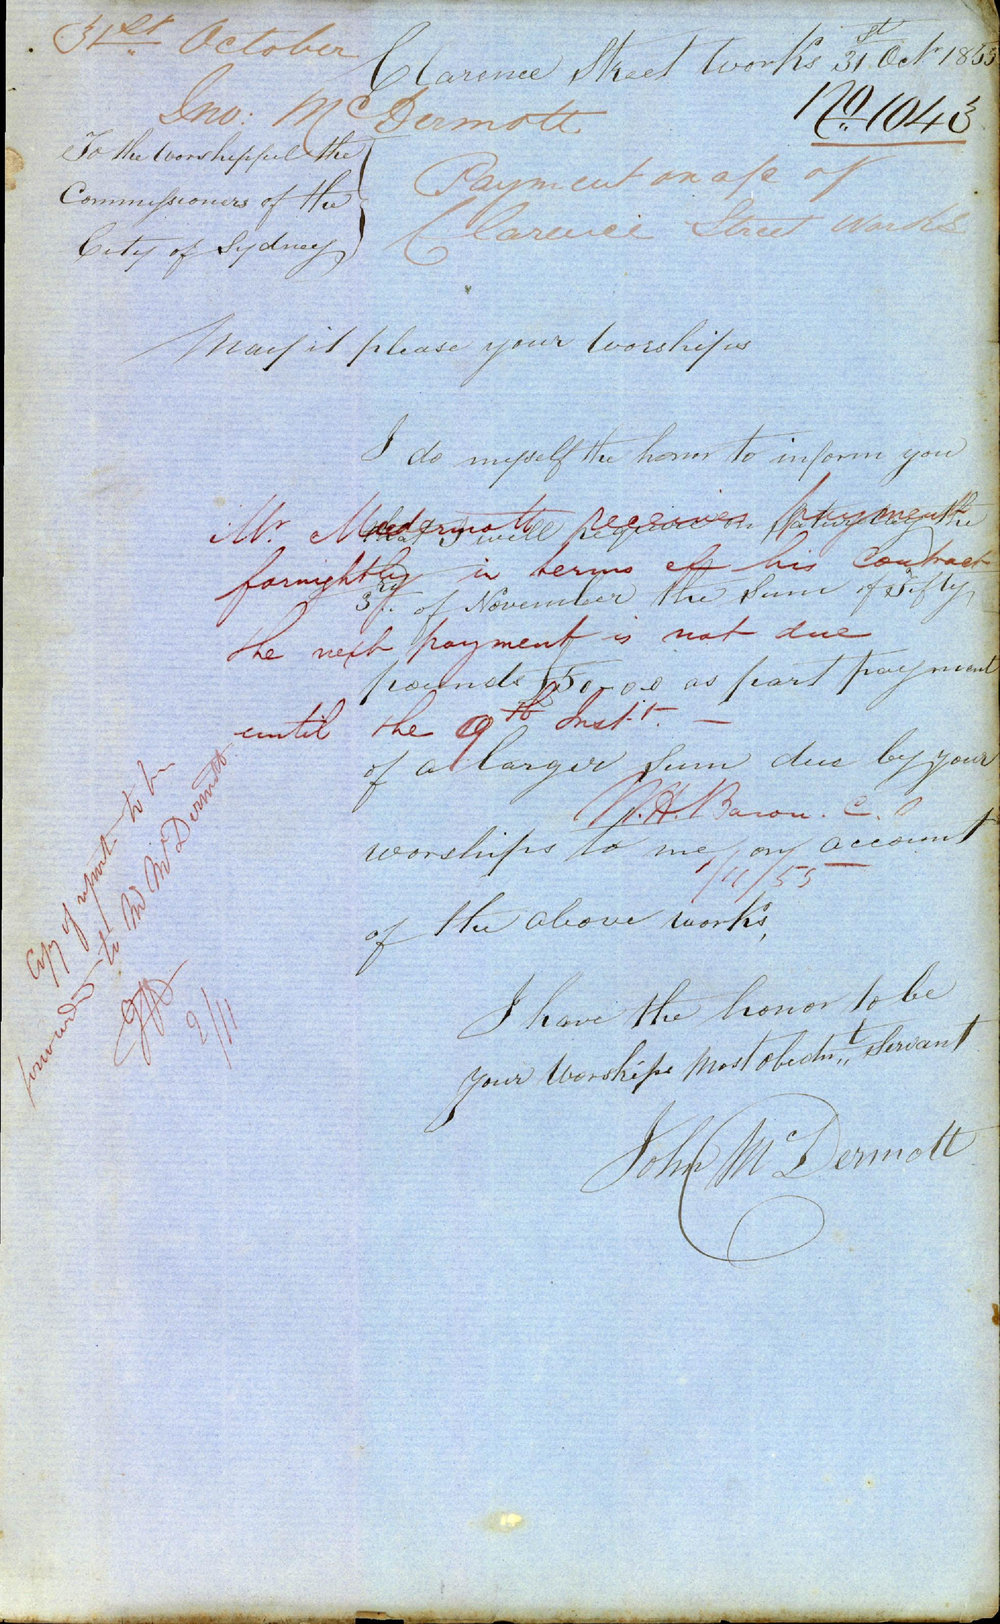 31st October
Clarence Street Works 31st Octr 1855
Jno: McDermott
No. 1043
To the Worshipful the
Commissioners of the
City of Sydney
Payment on a/c of
Clarence Street Works
May it please your Worships
I do myself the honor to inform you
that I will require on Saturday the
3rd. of November the Sum of Fifty
pounds £50-0.0 as part payment
of a larger Sum due by your
worships to me on account
of the above works,
I have the honor to be
your Worships Most obednt,, Servant
John McDermott
Mr. McDermott receives payment
fornightly in terms of his contract
the next payment is not due
until the 9th Inst. —
W.H. Baron. C.O
1/11/55
Copy of report to be
forwarded to Mr McDermott
2/11